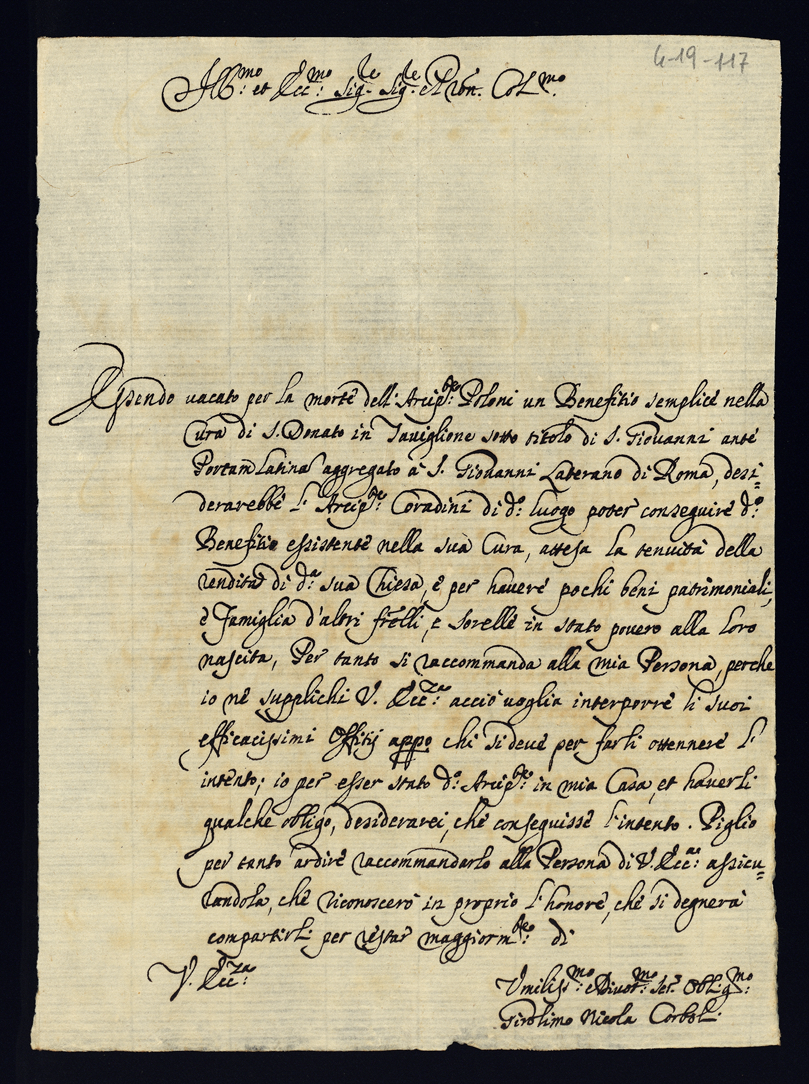 4-19-117
Ill:mo et Ecc:mo Sig.re Sig.re e Pron. Col.mo
Essendo vacato per la morte dell'Arcip:te Poloni un Benefitio semplicè nella
Cura di S. Donato in Taviglione sotto titolo di S. Giovanni antè
Portam Latina aggregato à S. Giovanni Laterano di Roma, desi=
derarebbè l'Arcip:te Coradini di d:o luogo poter conseguirè d:o
Benefitio essistentè nella suà Cura, attesa la tenuità della
rendità di d:a sua Chiesa, è per haverè pochi beni patrimoniali,
è Famiglia d'altri frelli, è sorellè in stato povero alla loro
nascita, Per tanto si raccommanda alla mia Persona, perche
io nè supplichi V. Ecc:za acciò voglia interporrè li suoi
efficacissimi Offitij appo chi si devè per farli ottennerè l'
intento; io per esser stato d:o Arcip:te in mia Casa, et haverli
qualche obligo, desiderarei, chè conseguissè l'intento. Piglio
per tanto ardirè raccommandarlo alla Persona di V. Ecc:a assicu=
randola, chè riconoscerò in proprio l'honorè, chè si degnerà
compartirli per restar maggiorm:te di
V. Ecc:za
Vmiliss:mo e Divot:mo Ser. Obl.gmo
Girolimo Nicola Corboli